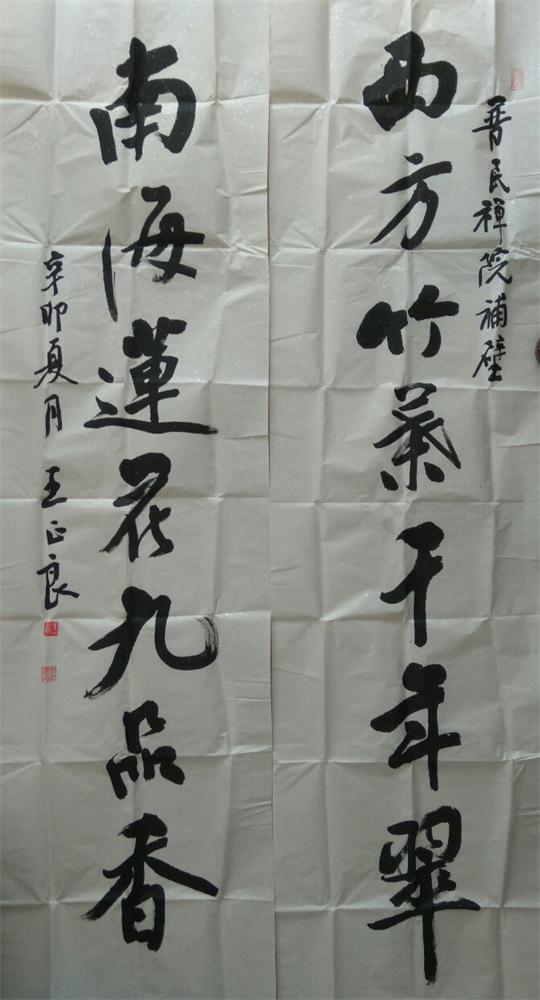 普民禅院補壁
西方竹葉千年翠
南海蓮花九品香
辛卯夏月 王正良